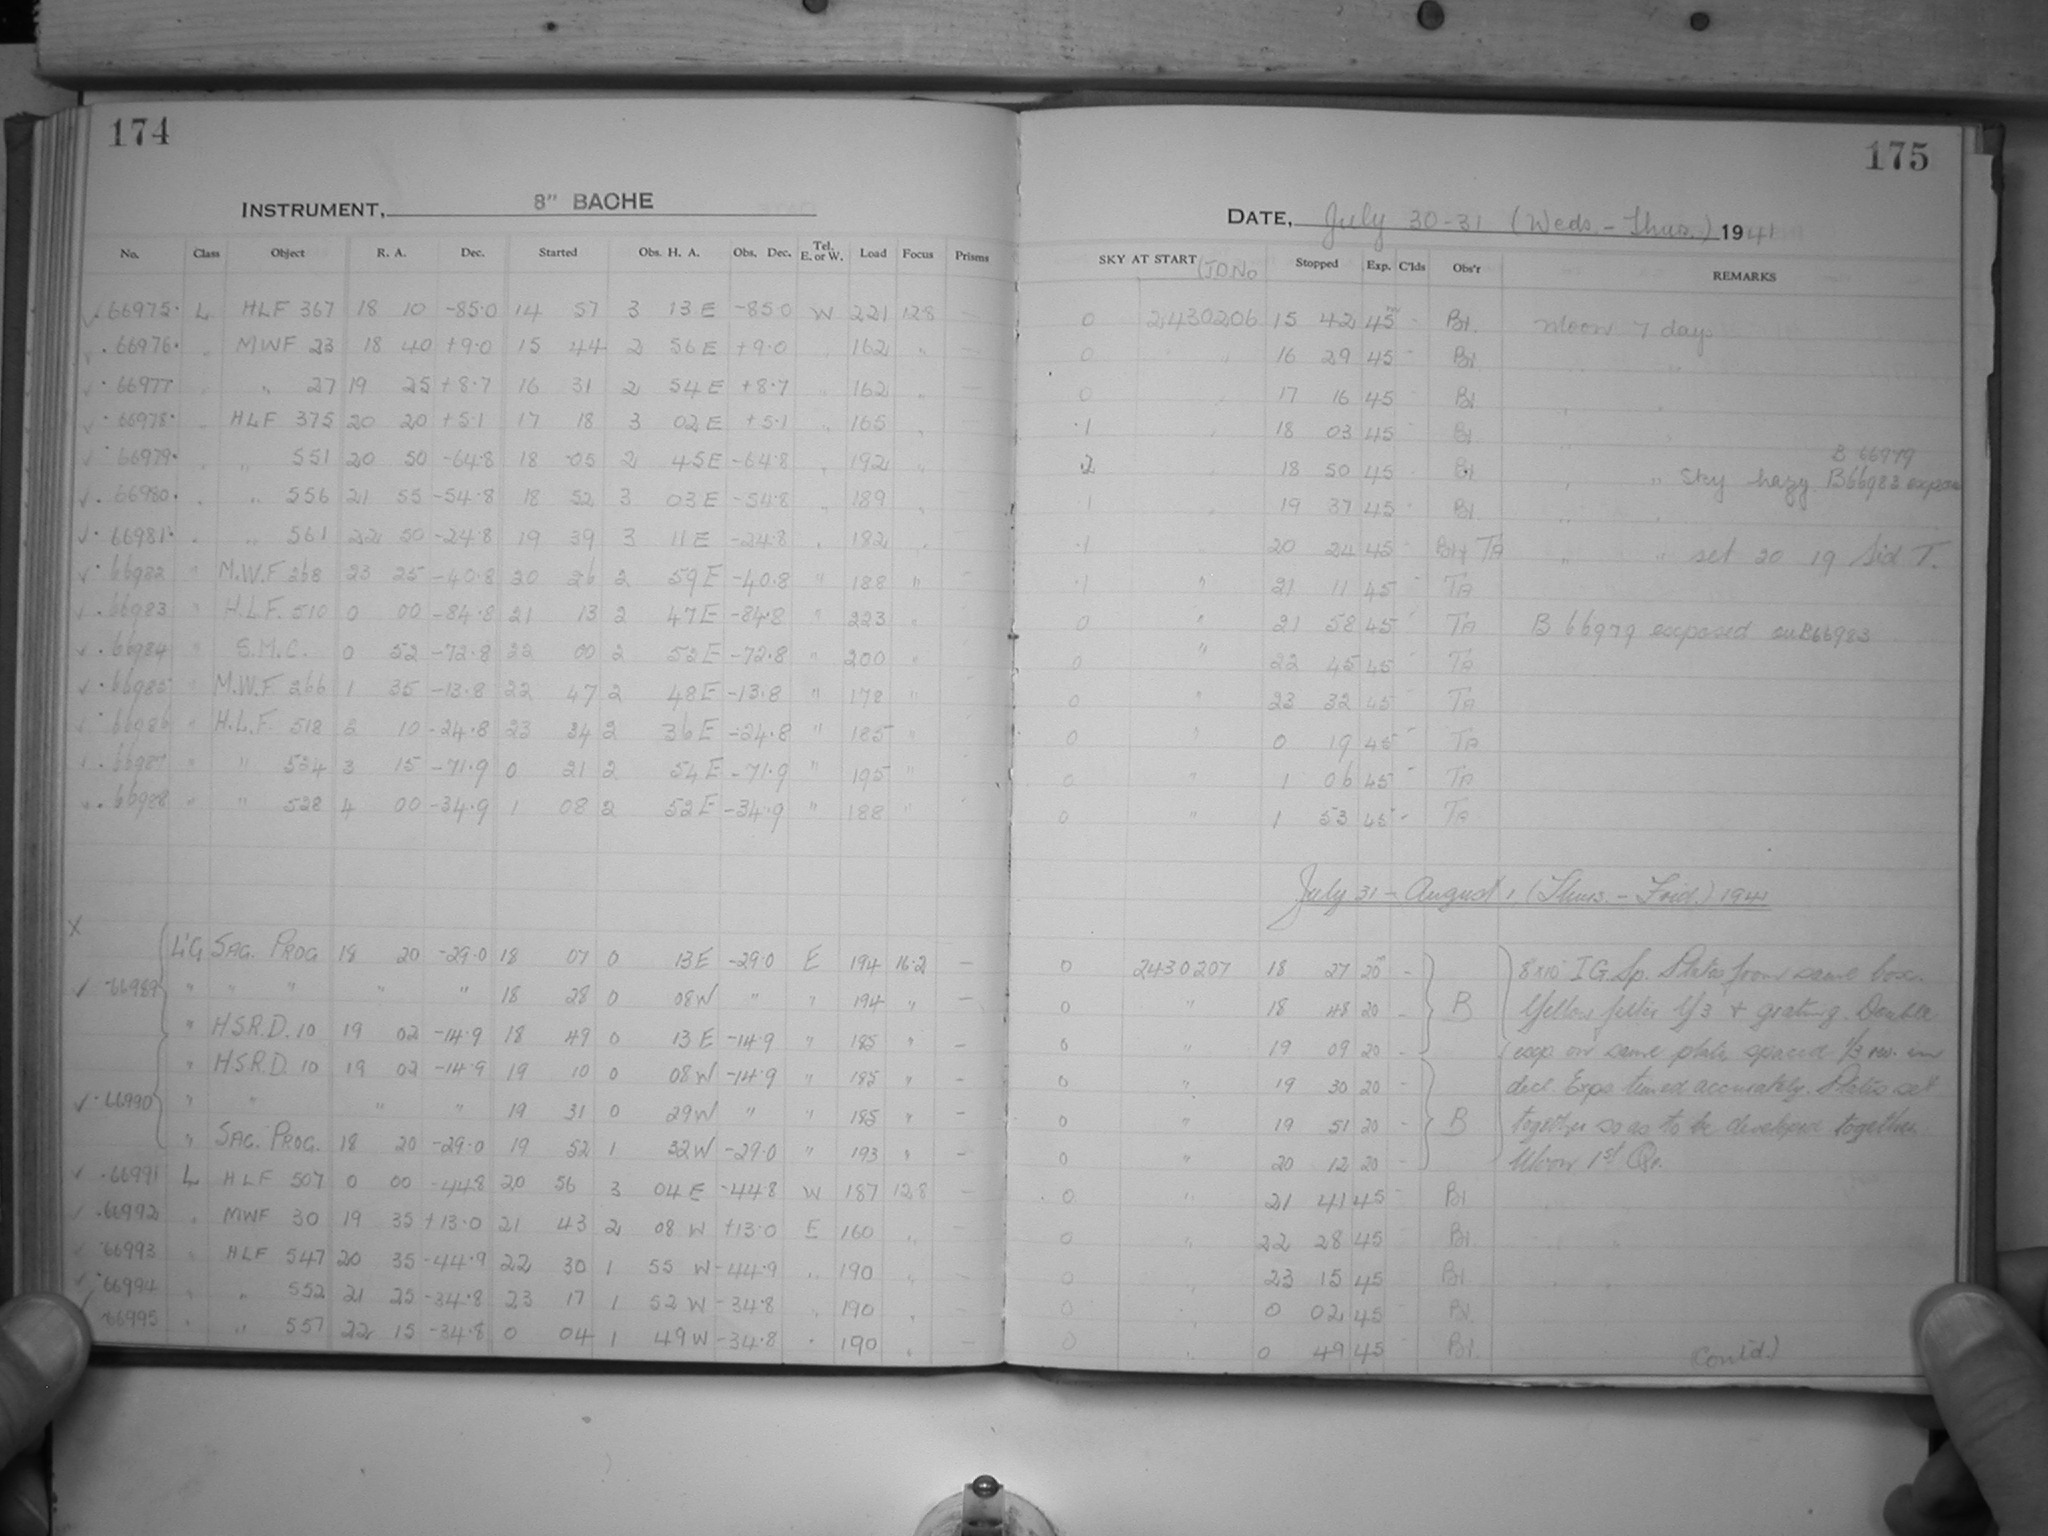 174
INSTRUMENT, 8" BACHE
No. Class Object R. A. Dec. Started Obs. H. A. Obs. Dec. Tel. E. or W. Load Focus Prisms
66975 L HLF 367 18 10 -85.0 14 57 3 13 E -85.0 W 221 12.8
66976 " MWF 23 18 40 +9.0 15 44 2 56 E +9.0 " 162 " —
66977 " " 27 19 25 +8.7 16 31 2 54 E +8.7 " 162 " —
66978 " HLF 375 20 20 +5.1 17 18 3 02 E +5.1 " 165 "
66979 " " 551 20 50 -64.8 18 05 2 45 E -64.8 " 192 "
66980 " " 556 21 55 -54.8 18 52 3 03 E -54.8 " 189 "
66981 " " 561 22 50 -24.8 19 39 3 11 E -24.8 " 182 "
66982 " M.W.F 268 23 25 -40.8 20 26 2 59 E -40.8 " 188 "
66983 " H.L.F. 510 0 00 -84.8 21 13 2 47 E -84.8 " 223 "
66984 " S.M.C. 0 52 -72.8 22 00 2 52 E -72.8 " 200 "
66985 " M.W.F 266 1 35 -13.8 22 47 2 48 E -13.8 " 178 "
66986 " H.L.F. 518 2 10 -24.8 23 34 2 36 E -24.8 " 185 "
66987 " " 534 3 15 -71.9 0 21 2 54 E -71.9 " 195 "
66988 " " 528 4 00 -34.9 1 08 2 52 E -34.9 " 188 "
X
L'G SAG. PROG 18 20 -29.0 18 07 0 13 E -29.0 E 194 16.2 —
66989 " " " " " 18 28 0 08 W " " 194 " —
" H.S.R.D. 10 19 02 -14.9 18 49 0 13 E -14.9 " 185 " —
" H.S.R.D. 10 19 02 -14.9 19 10 0 08 W -14.9 " 185 " —
66990 " " " " 19 31 0 29 W " " 185 " —
" SAG. PROG. 18 20 -29.0 19 52 1 32 W -29.0 " 193 " —
66991 L HLF 507 0 00 -44.8 20 56 3 04 E -44.8 W 187 12.8 —
66992 " MWF 30 19 35 +13.0 21 43 2 08 W +13.0 E 160 "
66993 " HLF 547 20 35 -44.9 22 30 1 55 W -44.9 " 190 "
66994 " " 552 21 25 -34.8 23 17 1 52 W -34.8 " 190 "
66995 " " 557 22 15 -34.8 0 04 1 49 W -34.8 " 190 " —
175
DATE, July 30-31 (Weds. - Thur.) 1941
SKY AT START (J.D. No Stopped Exp. C'lds Obs'r REMARKS
0 2430206 15 42 45 - Bl. Moon 7 day
0 " 16 29 45 - Bl
0 " 17 16 45 - Bl
.1 " 18 03 45 - Bl
B 66979
.2 " 18 50 45 - Bl " " Sky hazy B66983
.1 " 19 37 45 - Bl
.1 " 20 24 45 - Bl & TA " " set 20 19 Sid T.
.1 " 21 11 45 - TA
0 " 21 58 45 - TA B 66979 exposed on B66983
0 " 22 45 45 - TA
0 " 23 32 45 - TA
0 " 0 19 45 - TA
0 " 1 06 45 - TA
0 " 1 53 45 - TA
July 31 - August 1, (Thurs. - Frid.) 1941
0 2430207 18 27 20 - 8x10 I G. Sp. Plates from same box.
0 " 18 48 20 - B Yellow filter + grating. Double
0 " 19 09 20 - exp on same plate spaced 1/3 in
0 " 19 30 20 - decl. Exps timed accurately. Plates set
0 " 19 51 20 - B together so as to be developed together
0 " 20 12 20 - Moon 1st Qr.
0 " 21 41 45 - Bl
0 " 22 28 45 Bl
0 " 23 15 45 Bl
0 " 0 02 45 Bl
0 " 0 49 45 Bl. (Cont'd.)